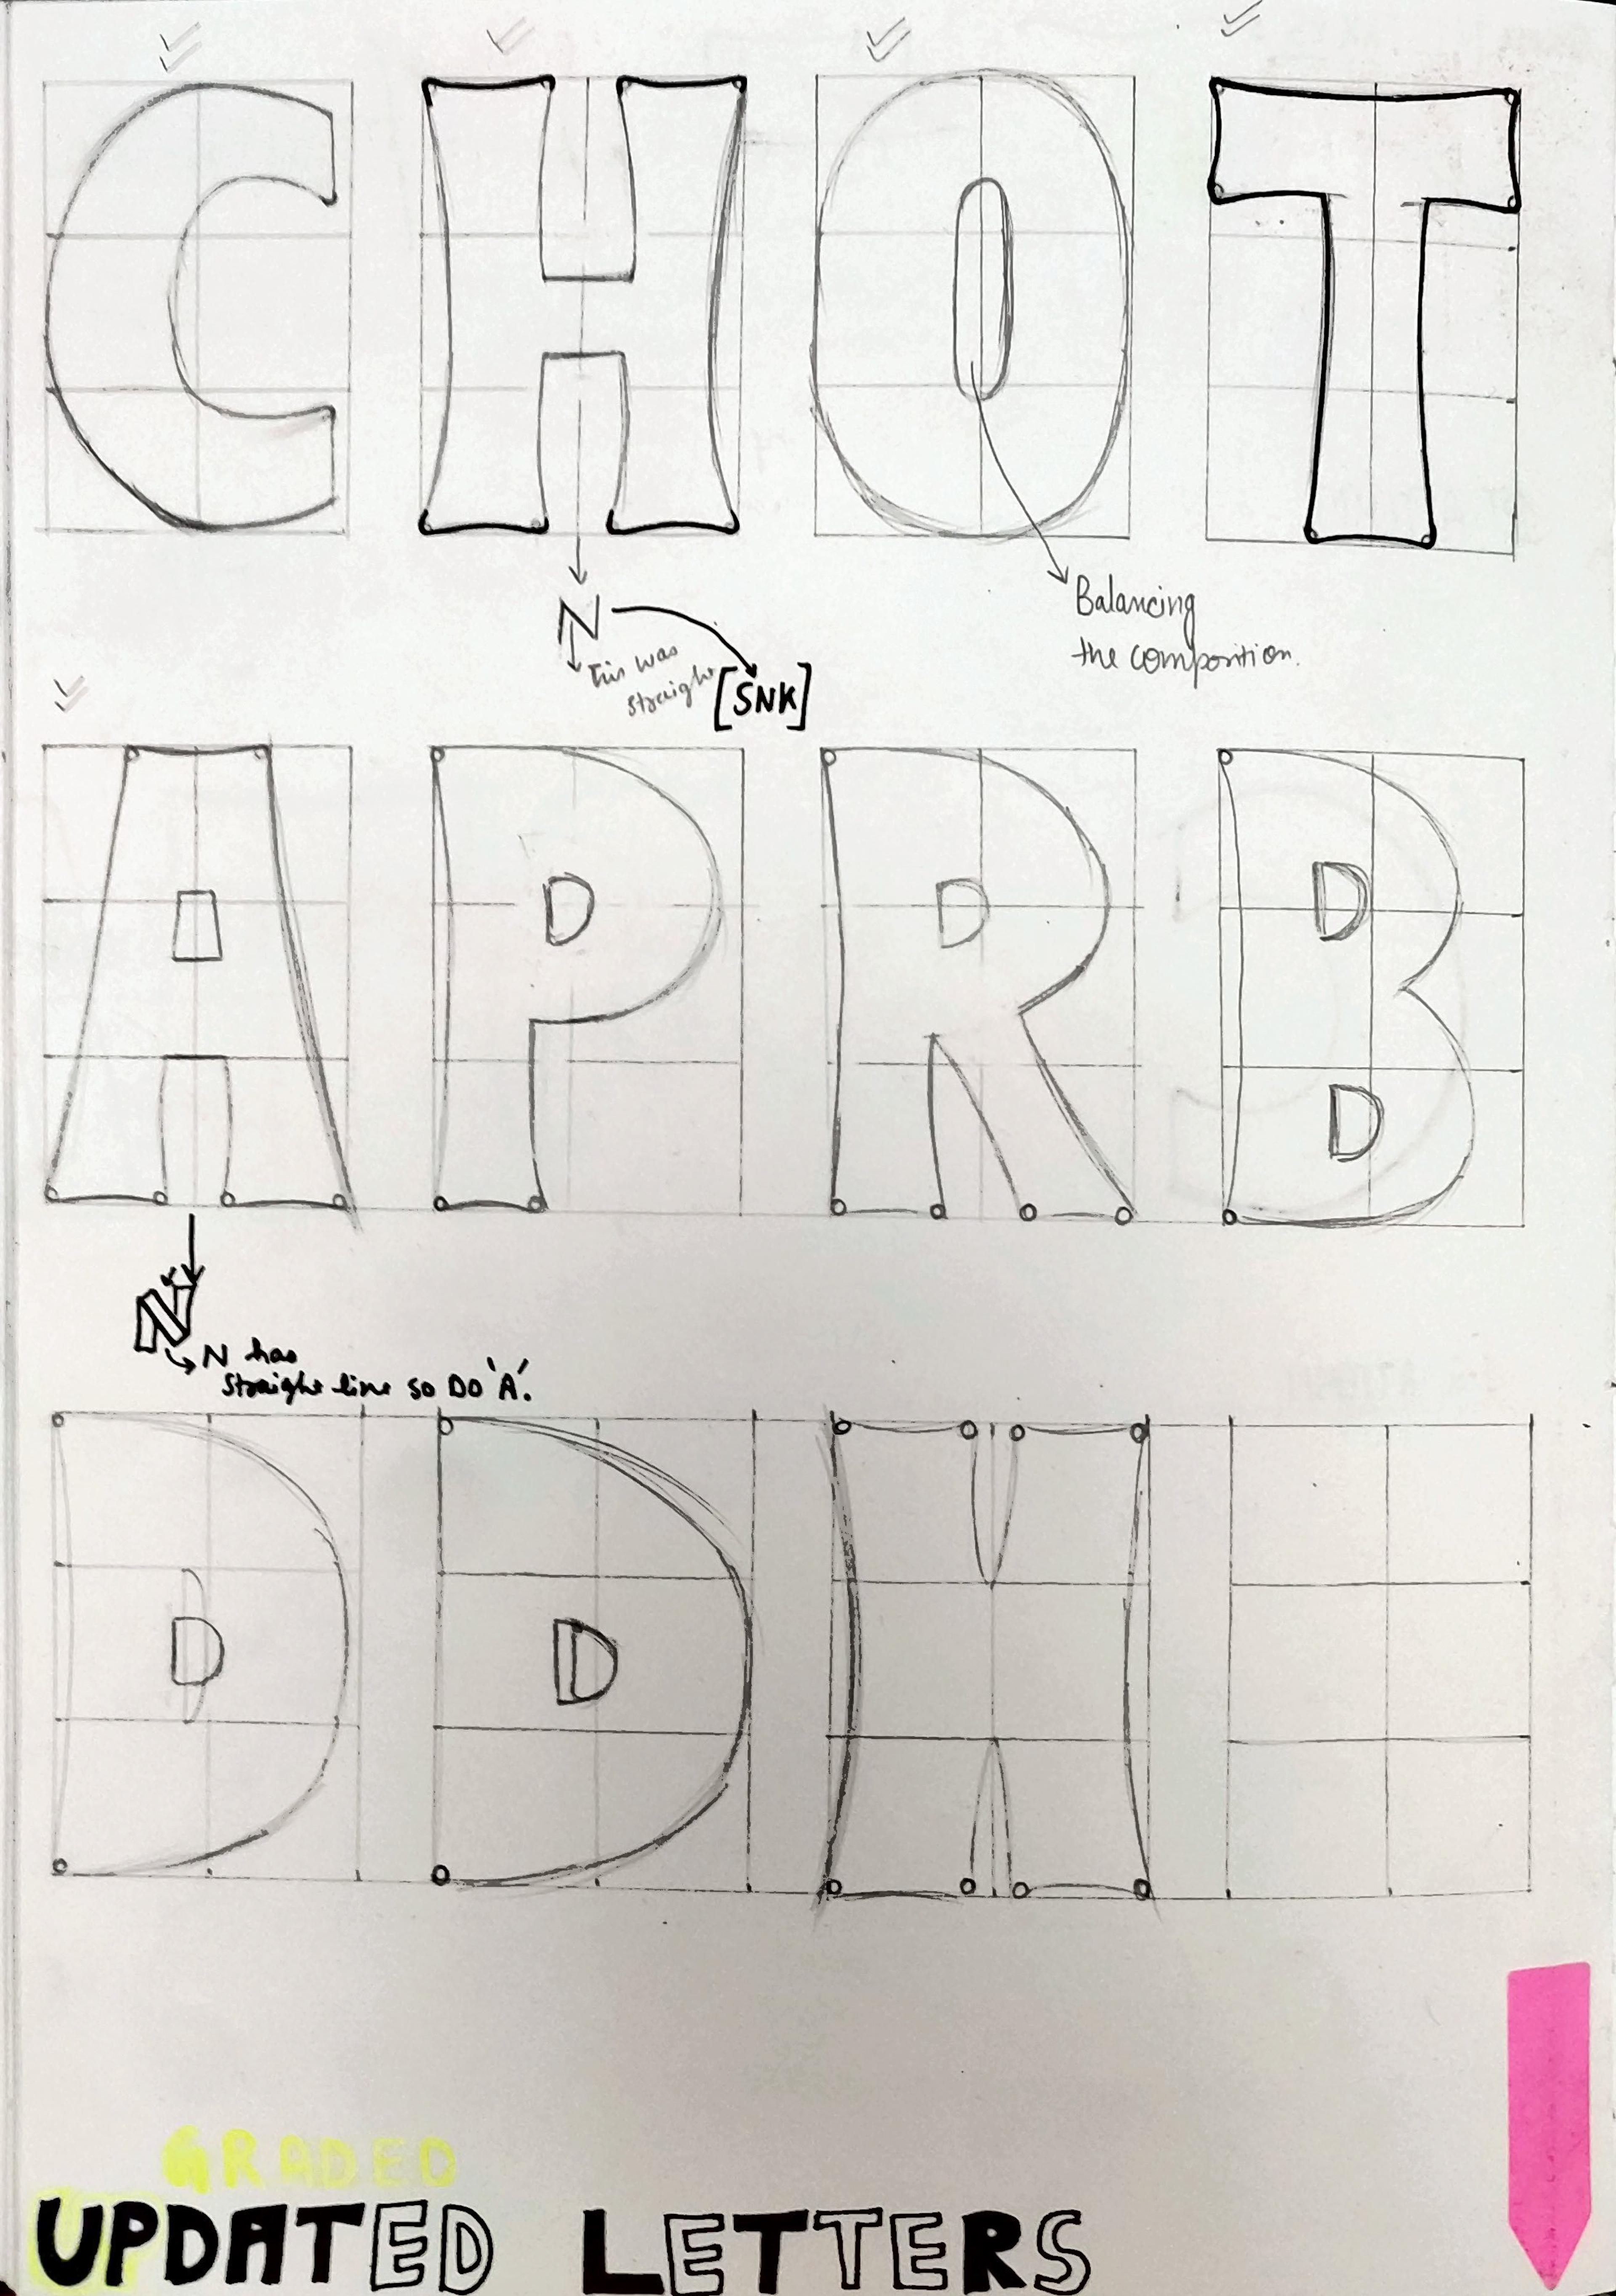 C H O T
N
This was
straight
[SNK]
Balancing
the composition.
A P R B
N
N has
straight line so DO 'A'.
D D H
GRADED
UPDATED LETTERS